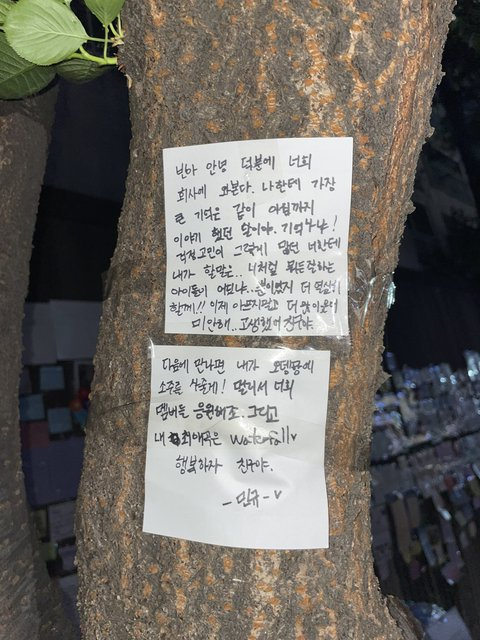 빈아 안녕 덕분에 너희
회사에 와본다. 나한테 가장
큰 기억은 같이 아침까지
이야기 했던 날이야. 기억나냐!
걱정고민이 그렇게 많던 너한테
내가 할말은.. 너처럼 뭐든 잘하는
아이돌이 어딨냐..뿐이였지 더 열심히
할게!! 이제 아프지말고 더 못 미안해
미안해.. 고생했어 친구야
다음에 만나면 내가 오뎅탕에
소주를 사줄게! 멀리서 너희
멤버들 응원해조. 그리고
내 최애곡은 Waterfall♥
행복하자 친구야.
- 민규 - ♥